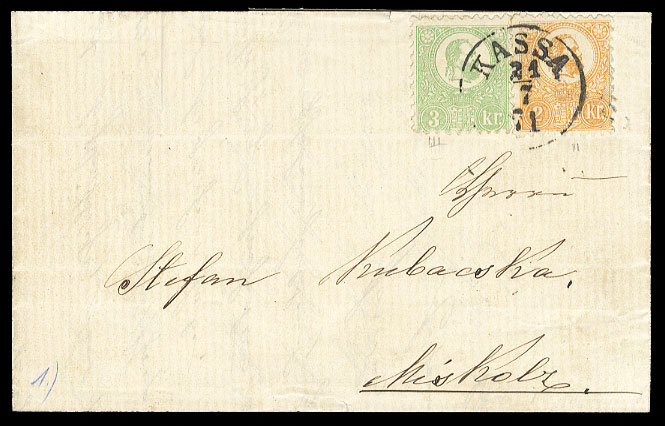 KASSA
21
7
71
3 Kr.
2 Kr.
Herrn
Stefan Kubacska.
Miskolz.
1.)